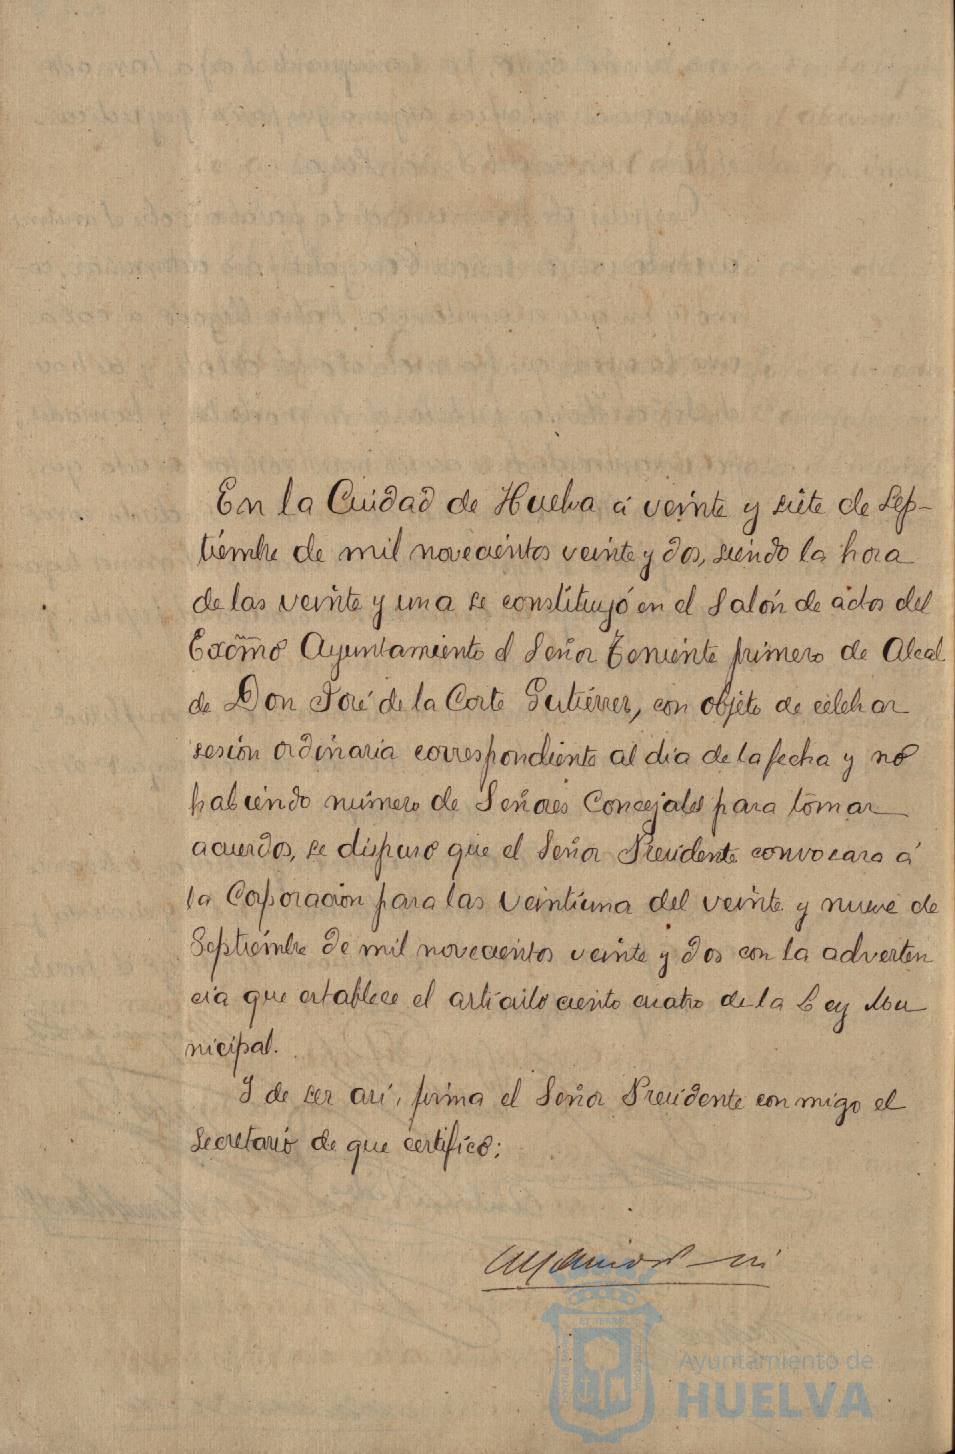 En la Ciudad de Huelva á veinte y siete de Sep-
tiembre de mil novecientos veinte y dos, siendo la hora
de las veinte y una se constituyó en el Salón de actos del
Excmo Ayuntamiento el Señor Teniente primero de Alcal
de Don José de la Corte Gutiérrez, con objeto de celebrar
sesión ordinaria correspondiente al día de la fecha y no
habiendo número de Señores Concejales para tomar
acuerdos, se dispuso que el Señor Presidente convocara á
la Corporación para las veintiuna del veinte y nueve de
Septiembre de mil novecientos veinte y dos con la adverten
cia que establece el artículo ciento cuatro de la Ley Mu
nicipal.
Y de ser así, firma el Señor Presidente conmigo el
Secretario de que certifico;
Ayuntamiento de
HUELVA